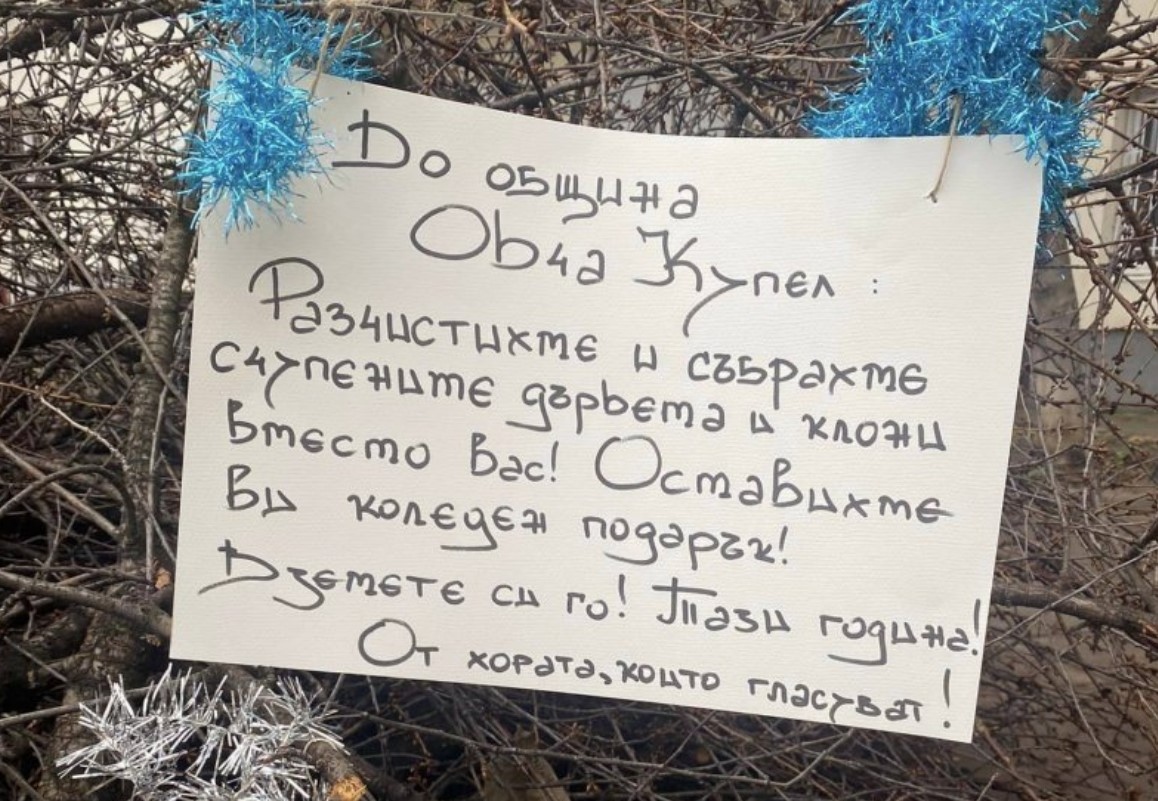 До община
Овча Купел :
Разчистихте и събрахте
счупените дървета и клони
вместо вас! Оставихте
Ви коледен подарък!
Вземете си го! Тази година!
От хората, които гласуват!